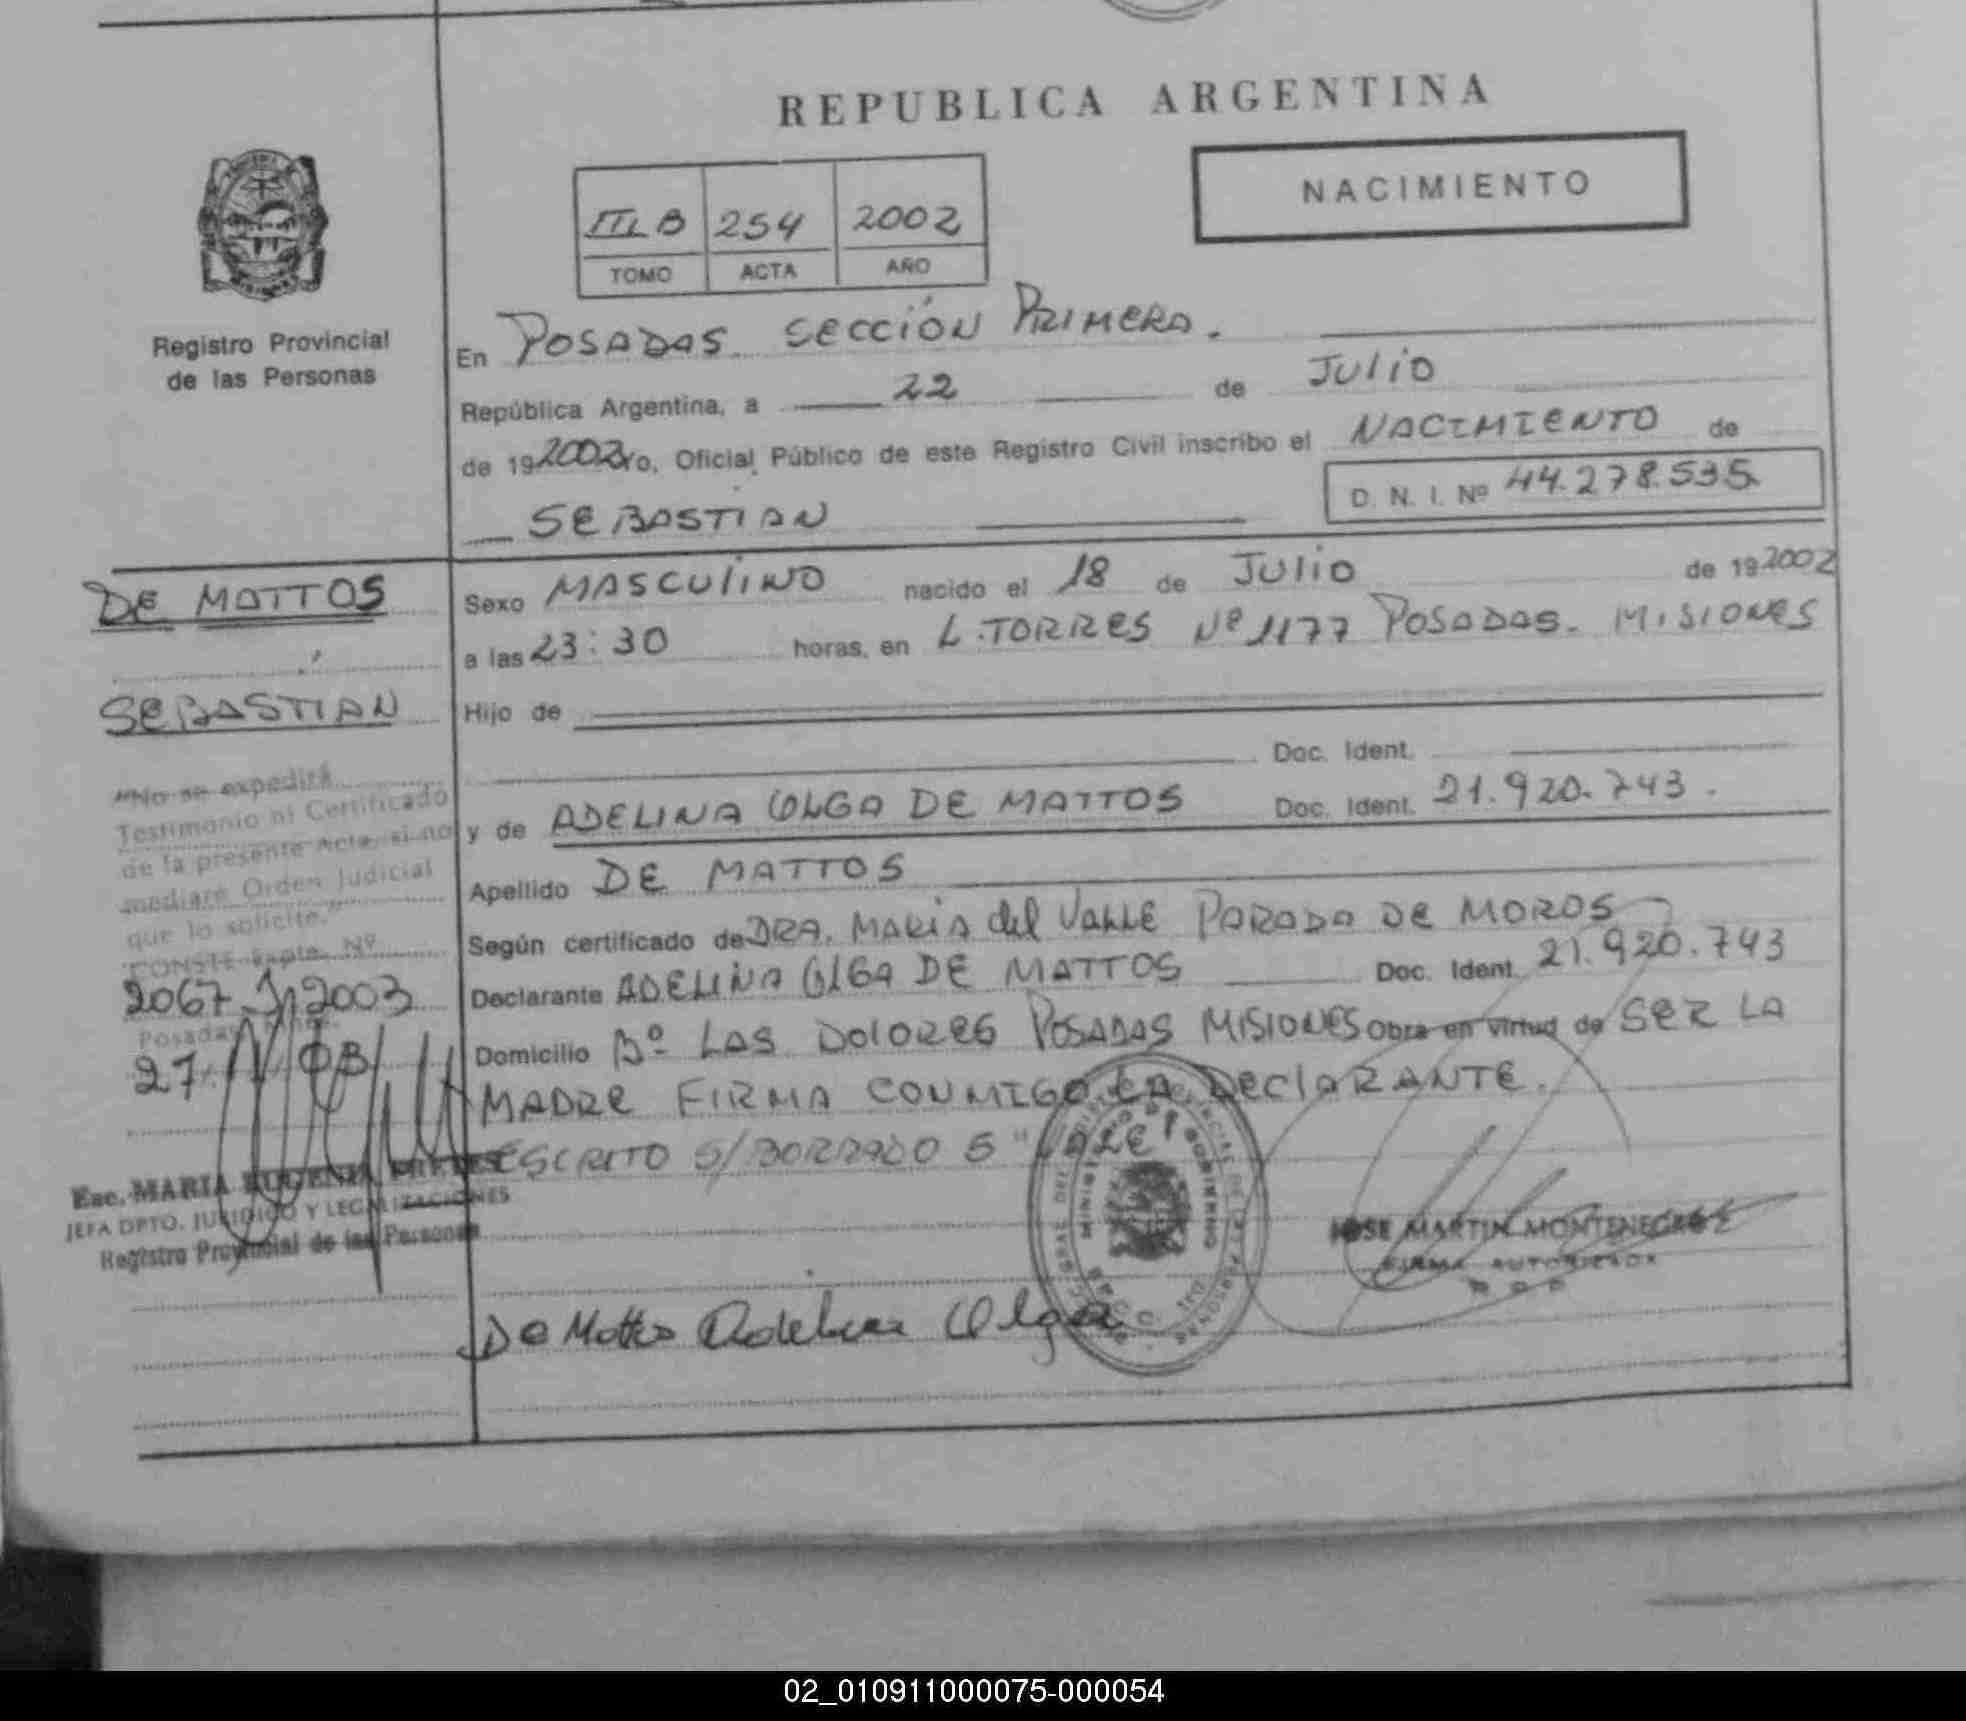 REPUBLICA ARGENTINA
NACIMIENTO
III B 254 2002
TOMO ACTA AÑO
Registro Provincial
de las Personas
En POSADAS SECCIÓN PRIMERA.
República Argentina, a 22 de JULIO
de 192002 yo, Oficial Público de este Registro Civil inscribo el NACIMIENTO de
D. N. I. Nº 44.278.535
SEBASTIAN
DE MATTOS
SEBASTIAN
Sexo MASCULINO nacido el 18 de JULIO de 192002
a las 23:30 horas, en L. TORRES Nº 1177 POSADAS. MISIONES
Hijo de
Doc. Ident.
y de ADELINA OLGA DE MATTOS Doc. Ident. 21.920.743.
Apellido DE MATTOS
Según certificado de DRA. MARIA del VALLE PARADA DE MOROS
Declarante ADELINA OLGA DE MATTOS Doc. Ident. 21.920.743
Domicilio Bº LAS DOLORES POSADAS MISIONES Obra en virtud de SER LA
MADRE FIRMA CONMIGO LA DECLARANTE.
ESCRITO S/BORRADO S
"No se expedirá
Testimonio ni Certificado
de la presente Acta, si no
mediare Orden Judicial
que lo solicite."
CONSTE Expte. Nº
2067 2003
Posadas
27
Esc. MARIA EUGENIA
JEFA DPTO. JURIDICO Y LEGALIZACIONES
Registro Provincial de las Personas
JOSE MARTIN MONTENEGRO
FIRMA AUTORIZADA
De Mattos Adelina Olga
02_010911000075-000054